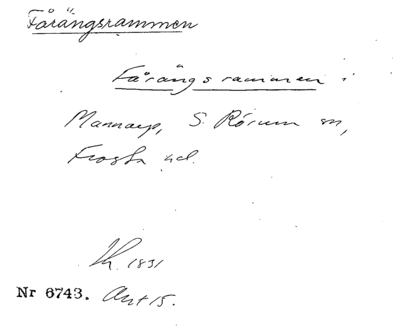 Fårängsrammen
Fårängsrammen i
Mannarp, S. Rörum sn,
Frosta hd.
1831
Nr 6743. Ant 15.